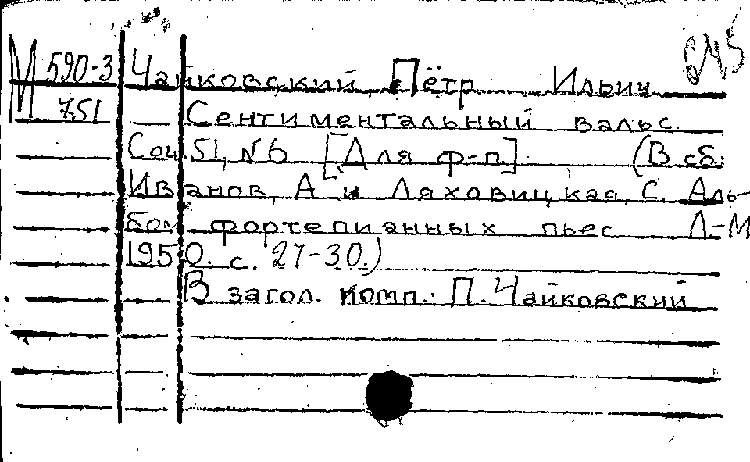 М 590-3 Чайковский Пётр Ильич
751 — Сентиментальный вальс.
Соч. 51, №6 [Для ф-п]. (В сб.:
Иванов, А. и Ляховицкая, С. Аль-
бом фортепианных пьес. Л-М
1950. с. 27-30.)
В загол. комп.: П. Чайковский